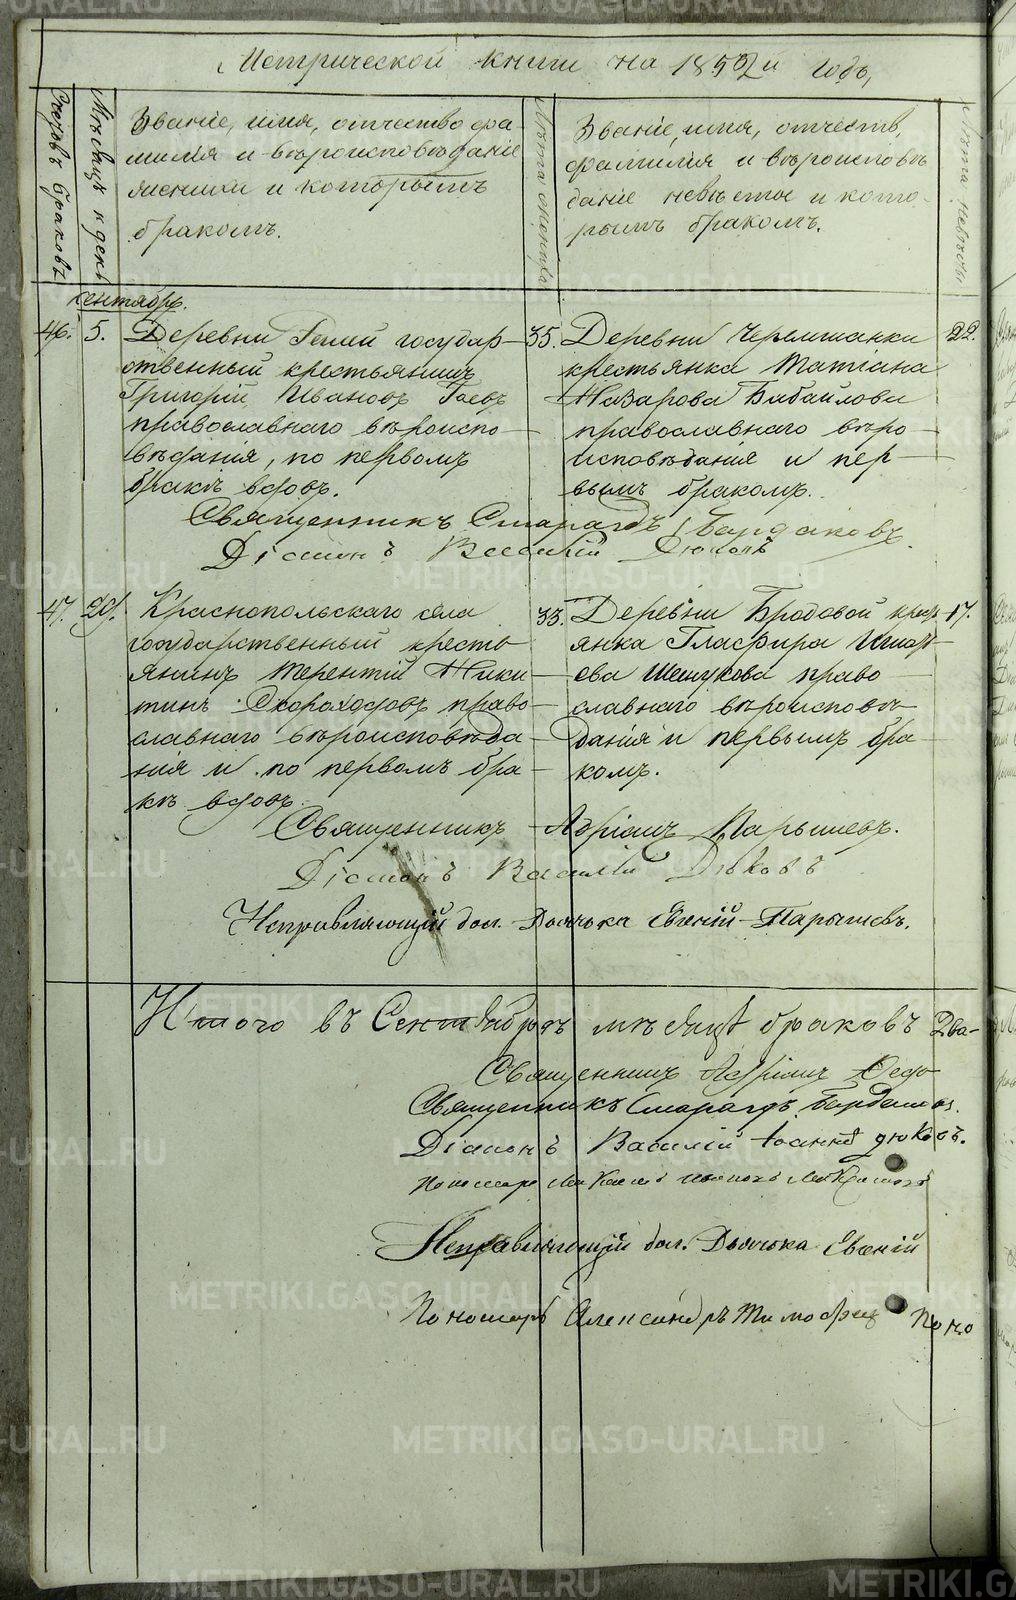 Метрической книги на 1852й годъ,
Счетъ браковъ
Мѣсяцъ и день
Званіе, имя, отчество фа-
милія и вѣроисповѣданіе
жениха и которымъ
бракомъ.
Лѣта жениха
Званіе, имя, отчеств,
фамилія и вѣроисповѣ
даніе невѣсты и кото-
рымъ бракомъ.
Лѣта невѣсты
Сентябрь.
46. 5. Деревни государ-
ственный крестьянинъ
Григорій Ивановъ Гаевъ
православнаго вѣроиспо-
вѣданія, по первомъ
бракѣ вдовъ.
35. Деревни Черемшанки
крестьянка Татіана
Назарова Бабайлова
православнаго вѣро-
исповѣданія и пер-
вымъ бракомъ.
22.
Священникъ Смарагдъ Бардаковъ
Діаконъ Василій Дюковъ
47. 29. Краснопольскаго села
государственный кресть
янинъ Терентій Ники-
тинъ Скороходовъ право-
славнаго вѣроисповѣда-
нія и по первомъ бра-
кѣ вдовъ.
33. Деревни Бродовой крест
янка Глафира Игнать-
ева Шешукова право
славнаго вѣроисповѣ-
данія и первымъ бра-
комъ.
17.
Священникъ Адріанъ Парышевъ.
Діаконъ Василій Дюковъ
Исправляющій дол. Дьячька Евгеній Парышевъ.
Итого въ Сентябрѣ мѣсяцѣ браковъ Два-
Священникъ Адріанъ
Священникъ Смарагдъ Бардаковъ.
Діаконъ Василій Дюковъ.
Исправляющій дол. Дьячька Евгеній
Пономарь Александръ Поно
METRIKI.GASO-URAL.RU